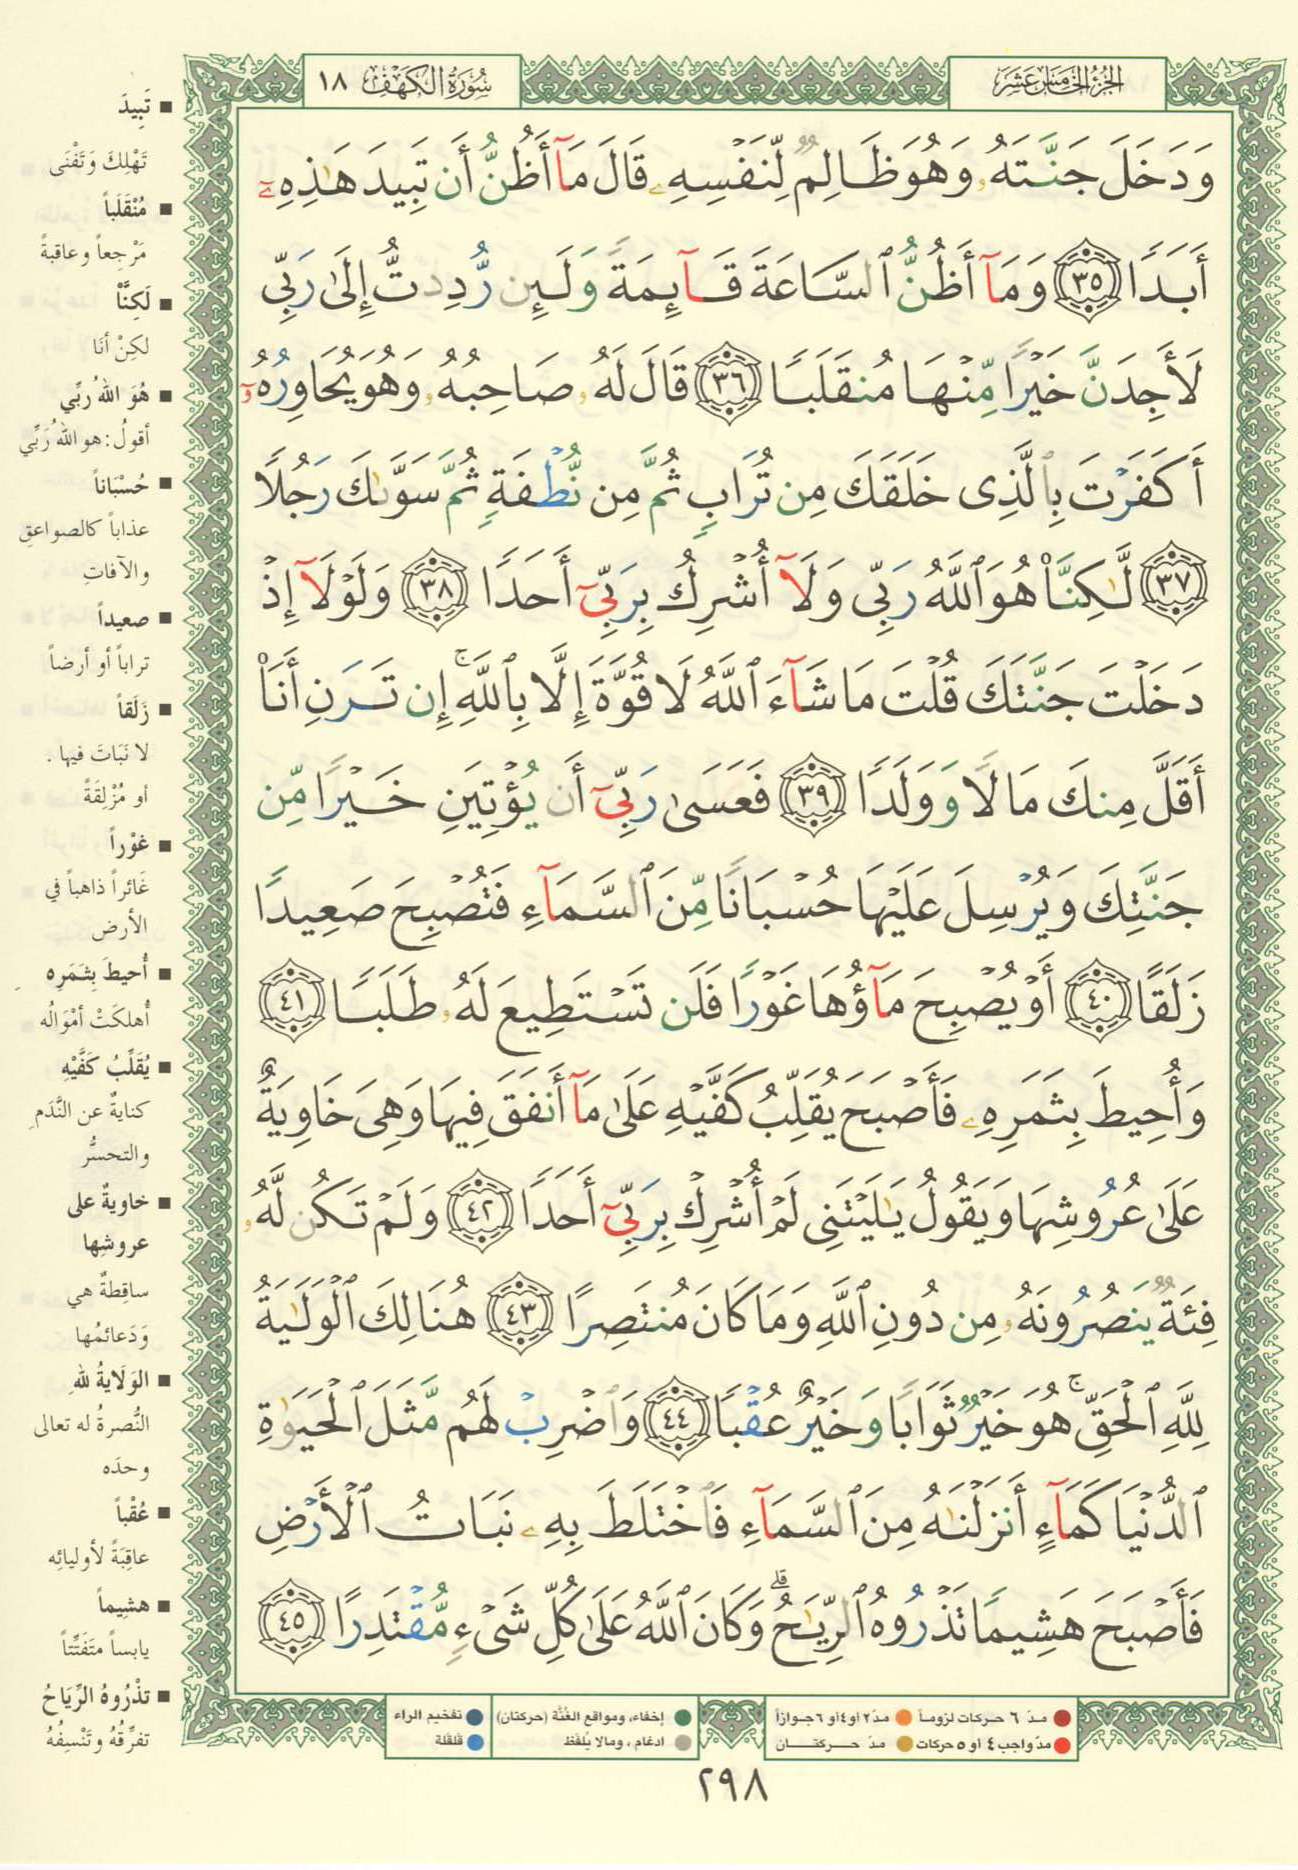 الجزء الخامس عشر
سورة الكهف ١٨
وَدَخَلَ جَنَّتَهُۥ وَهُوَ ظَالِمٌ لِّنَفْسِهِۦ قَالَ مَآ أَظُنُّ أَن تَبِيدَ هَٰذِهِۦٓ
أَبَدًا ٣٥ وَمَآ أَظُنُّ ٱلسَّاعَةَ قَآئِمَةً وَلَئِن رُّدِدتُّ إِلَىٰ رَبِّى
لَأَجِدَنَّ خَيْرًا مِّنْهَا مُنقَلَبًا ٣٦ قَالَ لَهُۥ صَاحِبُهُۥ وَهُوَ يُحَاوِرُهُۥٓ
أَكَفَرْتَ بِٱلَّذِى خَلَقَكَ مِن تُرَابٍ ثُمَّ مِن نُّطْفَةٍ ثُمَّ سَوَّىٰكَ رَجُلًا
٣٧ لَّٰكِنَّا۠ هُوَ ٱللَّهُ رَبِّى وَلَآ أُشْرِكُ بِرَبِّىٓ أَحَدًا ٣٨ وَلَوْلَآ إِذْ
دَخَلْتَ جَنَّتَكَ قُلْتَ مَا شَآءَ ٱللَّهُ لَا قُوَّةَ إِلَّا بِٱللَّهِ ۚ إِن تَرَنِ أَنَا۠
أَقَلَّ مِنكَ مَالًا وَوَلَدًا ٣٩ فَعَسَىٰ رَبِّىٓ أَن يُؤْتِيَنِ خَيْرًا مِّن
جَنَّتِكَ وَيُرْسِلَ عَلَيْهَا حُسْبَانًا مِّنَ ٱلسَّمَآءِ فَتُصْبِحَ صَعِيدًا
زَلَقًا ٤٠ أَوْ يُصْبِحَ مَآؤُهَا غَوْرًا فَلَن تَسْتَطِيعَ لَهُۥ طَلَبًا ٤١
وَأُحِيطَ بِثَمَرِهِۦ فَأَصْبَحَ يُقَلِّبُ كَفَّيْهِ عَلَىٰ مَآ أَنفَقَ فِيهَا وَهِىَ خَاوِيَةٌ
عَلَىٰ عُرُوشِهَا وَيَقُولُ يَٰلَيْتَنِى لَمْ أُشْرِكْ بِرَبِّىٓ أَحَدًا ٤٢ وَلَمْ تَكُن لَّهُۥ
فِئَةٌ يَنصُرُونَهُۥ مِن دُونِ ٱللَّهِ وَمَا كَانَ مُنتَصِرًا ٤٣ هُنَالِكَ ٱلْوَلَٰيَةُ
لِلَّهِ ٱلْحَقِّ ۚ هُوَ خَيْرٌ ثَوَابًا وَخَيْرٌ عُقْبًا ٤٤ وَٱضْرِبْ لَهُم مَّثَلَ ٱلْحَيَوٰةِ
ٱلدُّنْيَا كَمَآءٍ أَنزَلْنَٰهُ مِنَ ٱلسَّمَآءِ فَٱخْتَلَطَ بِهِۦ نَبَاتُ ٱلْأَرْضِ
فَأَصْبَحَ هَشِيمًا تَذْرُوهُ ٱلرِّيَٰحُ ۗ وَكَانَ ٱللَّهُ عَلَىٰ كُلِّ شَىْءٍ مُّقْتَدِرًا ٤٥
▪ تَبِيدَ
تَهْلِكَ وَتَفْنَى
▪ مُنْقَلَباً
مَرْجِعاً وعاقبةً
▪ لَكِنَّاْ
لكِنْ أنَا
▪ هُوَ اللهُ رَبِّي
أقولُ: هو اللهُ رَبِّي
▪ حُسْبَاناً
عذاباً كالصواعقِ
والآفاتِ
▪ صعيداً
تراباً أو أرضاً
▪ زَلَقاً
لا نَبَاتَ فيها .
أو مُزْلِقَةً
▪ غوْراً
غَائراً ذاهباً في
الأرض
▪ أُحيطَ بِثَمَرِه
أُهلكَتْ أمْوَالُه
▪ يُقَلِّبُ كَفَّيْهِ
كنايةٌ عن النَّدَمِ
والتحسُّر
▪ خاويةٌ على
عروشِها
ساقِطةٌ هي
وَدَعائمُها
▪ الوَلَايةُ للهِ
النُّصرةُ له تعالى
وحدَه
▪ عُقْباً
عاقِبَةً لأوليائِه
▪ هشِيماً
يابساً متَفَتِّتاً
▪ تذْرُوهُ الرِّيَاحُ
تفرِّقُهُ وتَنْسِفُهُ
مدّ ٦ حركات لزوماً
مدّ ٢ أو ٤ أو ٦ جوازاً
مدّ واجب ٤ أو ٥ حركات
مدّ حركتان
إخفاء، ومواقع الغُنَّة (حركتان)
ادغام ، ومالا يُلفَظ
تفخيم الراء
قلقلة
٢٩٨